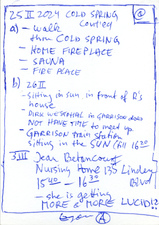 25 II 2024 COLD SPRING
a) - walk
thru COLD SPRING
- HOME FIREPLACE
- SAUNA
- FIRE PLACE
b) 26 II
- sitting in sun in front of R's
house
DIRK WESTPHAL in GARRISON does
NOT HAVE TIME to meet up
- GARRISON train station
sitting in the SUN till 16 30
3 III Jean Betancourt
Nursing Home 135 Linden
15 40 - 16 30 Blvd
- she is getting
MORE & MORE LUCID!